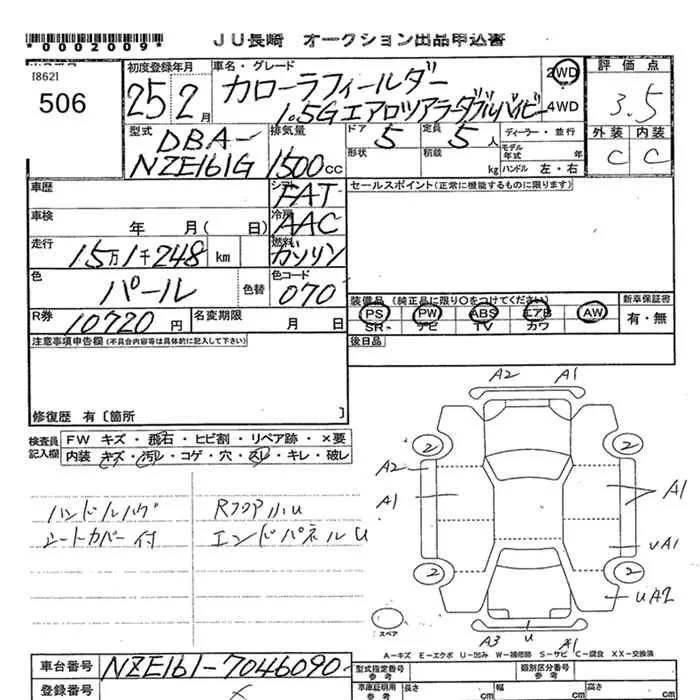 *0002009*
JU長崎 オークション出品申込書
[862]
506
初度登録年月
25年2月
車名・グレード
カローラフィールダー
1.5Gエアロツアラーダブルバイビー
2WD
4WD
評価点
3.5
外装 内装
C C
型式
DBA-
NZE161G
排気量
1500cc
ドア 5
定員 5人
形状
積載 kg
ディーラー・並行
モデル年式 年
ハンドル 左・右
車歴
シフト
FAT
セールスポイント(正常に機能するものに限ります)
車検 年 月( 日)
冷房
AAC
走行 15万1千248km
燃料
ガソリン
色 パール
色替
色コード
070
装備品 (純正品に限り○をつけてください)
新車保証書
PS PW ABS エアB AW
有・無
SR ナビ TV カワ
R券 10720円
名変期限 月 日
後日品
注意事項申告欄(不具合内容等は具体的に記入して下さい)
修復歴 有〔箇所 〕
検査員記入欄
FW キズ・飛石・ヒビ割・リペア跡・×要
内装 キズ・汚レ・コゲ・穴・スレ・キレ・破レ
ハンドルハゲ
シートカバー付
RフロアハU
エンドパネルU
A2 A1
2 2
A2
A1 A1
UA1
2 2
UA2
スペア
A3 U A1
A-キズ E-エクボ U-凹み W-補修跡 S-サビ C-腐食 XX-交換済
車台番号 NZE161-7046090
型式指定番号 参考
類別区分番号 参考
登録番号
車庫証明用 参考
長さ cm
幅 cm
高さ cm